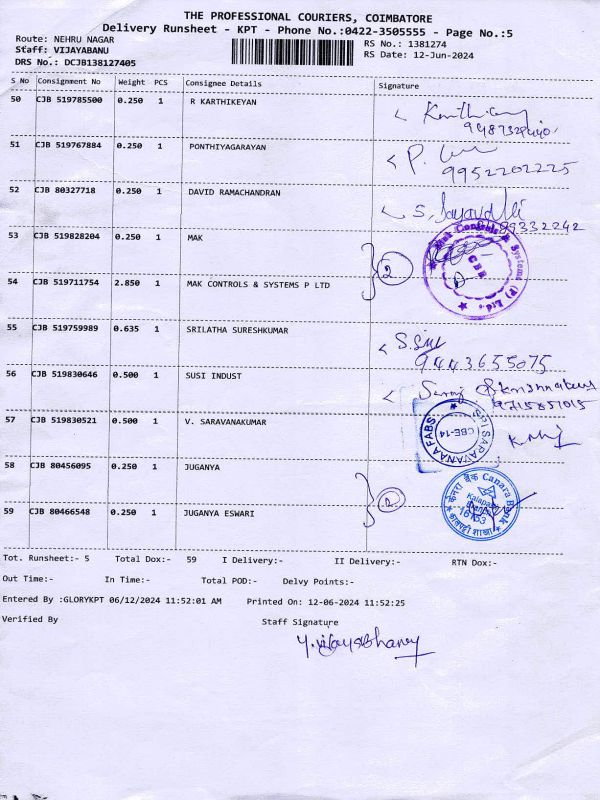 THE PROFESSIONAL COURIERS, COIMBATORE
Delivery Runsheet - KPT - Phone No.:0422-3505555 - Page No.:5
Route: NEHRU NAGAR RS No.: 1381274
Staff: VIJAYABANU RS Date: 12-Jun-2024
DRS No.: DCJB138127405
S No Consignment No Weight PCS Consignee Details Signature
50 CJB 519785500 0.250 1 R KARTHIKEYAN
51 CJB 519767884 0.250 1 PONTHIYAGARAYAN
P.
9952202225
52 CJB 80327718 0.250 1 DAVID RAMACHANDRAN
53 CJB 519828204 0.250 1 MAK
2
Mak Controls & Systems (P) Ltd.
CBE
54 CJB 519711754 2.850 1 MAK CONTROLS & SYSTEMS P LTD
55 CJB 519759989 0.635 1 SRILATHA SURESHKUMAR
9443655075
56 CJB 519830646 0.500 1 SUSI INDUST
57 CJB 519830521 0.500 1 V. SARAVANAKUMAR
SRI SARAVANAA FABS
CBE-14
58 CJB 80456095 0.250 1 JUGANYA
केनरा बैंक Canara Bank
16153
59 CJB 80466548 0.250 1 JUGANYA ESWARI
Tot. Runsheet:- 5 Total Dox:- 59 I Delivery:- II Delivery:- RTN Dox:-
Out Time:- In Time:- Total POD:- Delvy Points:-
Entered By :GLORYKPT 06/12/2024 11:52:01 AM Printed On: 12-06-2024 11:52:25
Verified By Staff Signature